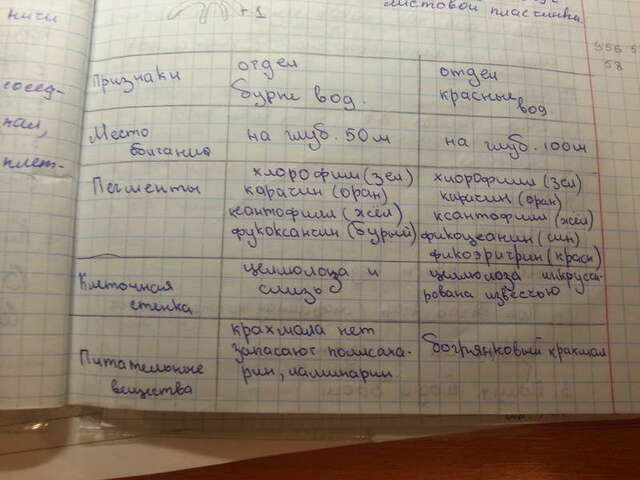 +1
листовой пластинка.
ниты
556 5
58
сосед-
ная,
плет-
Признаки
отдел
бурые вод.
отдел
красные вод.
Место
обитание
на глуб. 50м
на глуб. 100м
Пегменты
хлорофилл (зел)
каратин (оран)
ксантофилл (жёл)
фукоксантин (бурый)
хлорофилл (зел)
каратин (оран)
ксантофилл (жёл)
фикоцеанин (син)
фикоэритрин (красн)
Клеточная
стенка
целлюлоза и
слизь
целлюлоза инкрусти-
рована известью
Питательные
вещества
крахмала нет
запасают полисаха-
рин, ламинарин
богрянковый крахмал